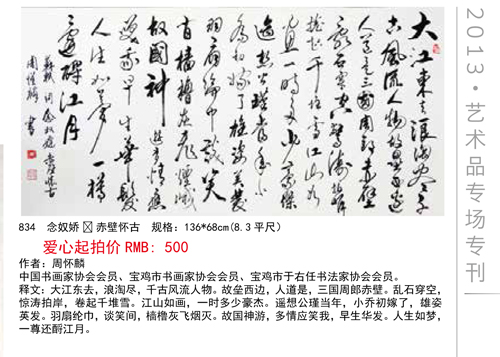 大江東去浪淘盡千
古風流人物故壘西邊
人道是三國周郎赤壁
亂石穿空驚濤拍
岸捲起千堆雪江山如
畫一時多少豪傑
遙想公瑾當年小
喬初嫁了雄姿英發
羽扇綸巾談笑
間檣櫓灰飛煙滅
故國神遊多情應
笑我早生華髮
人生如夢一樽
還酹江月
周懷麟書
2013·艺术品专场专刊
834 念奴娇 赤壁怀古 规格：136*68cm(8.3平尺)
爱心起拍价RMB: 500
作者：周怀麟
中国书画家协会会员、宝鸡市书画家协会会员、宝鸡市于右任书法家协会会员。
释文：大江东去，浪淘尽，千古风流人物。故垒西边，人道是，三国周郎赤壁。乱石穿空，
惊涛拍岸，卷起千堆雪。江山如画，一时多少豪杰。遥想公瑾当年，小乔初嫁了，雄姿
英发。羽扇纶巾，谈笑间，樯橹灰飞烟灭。故国神游，多情应笑我，早生华发。人生如梦，
一尊还酹江月。